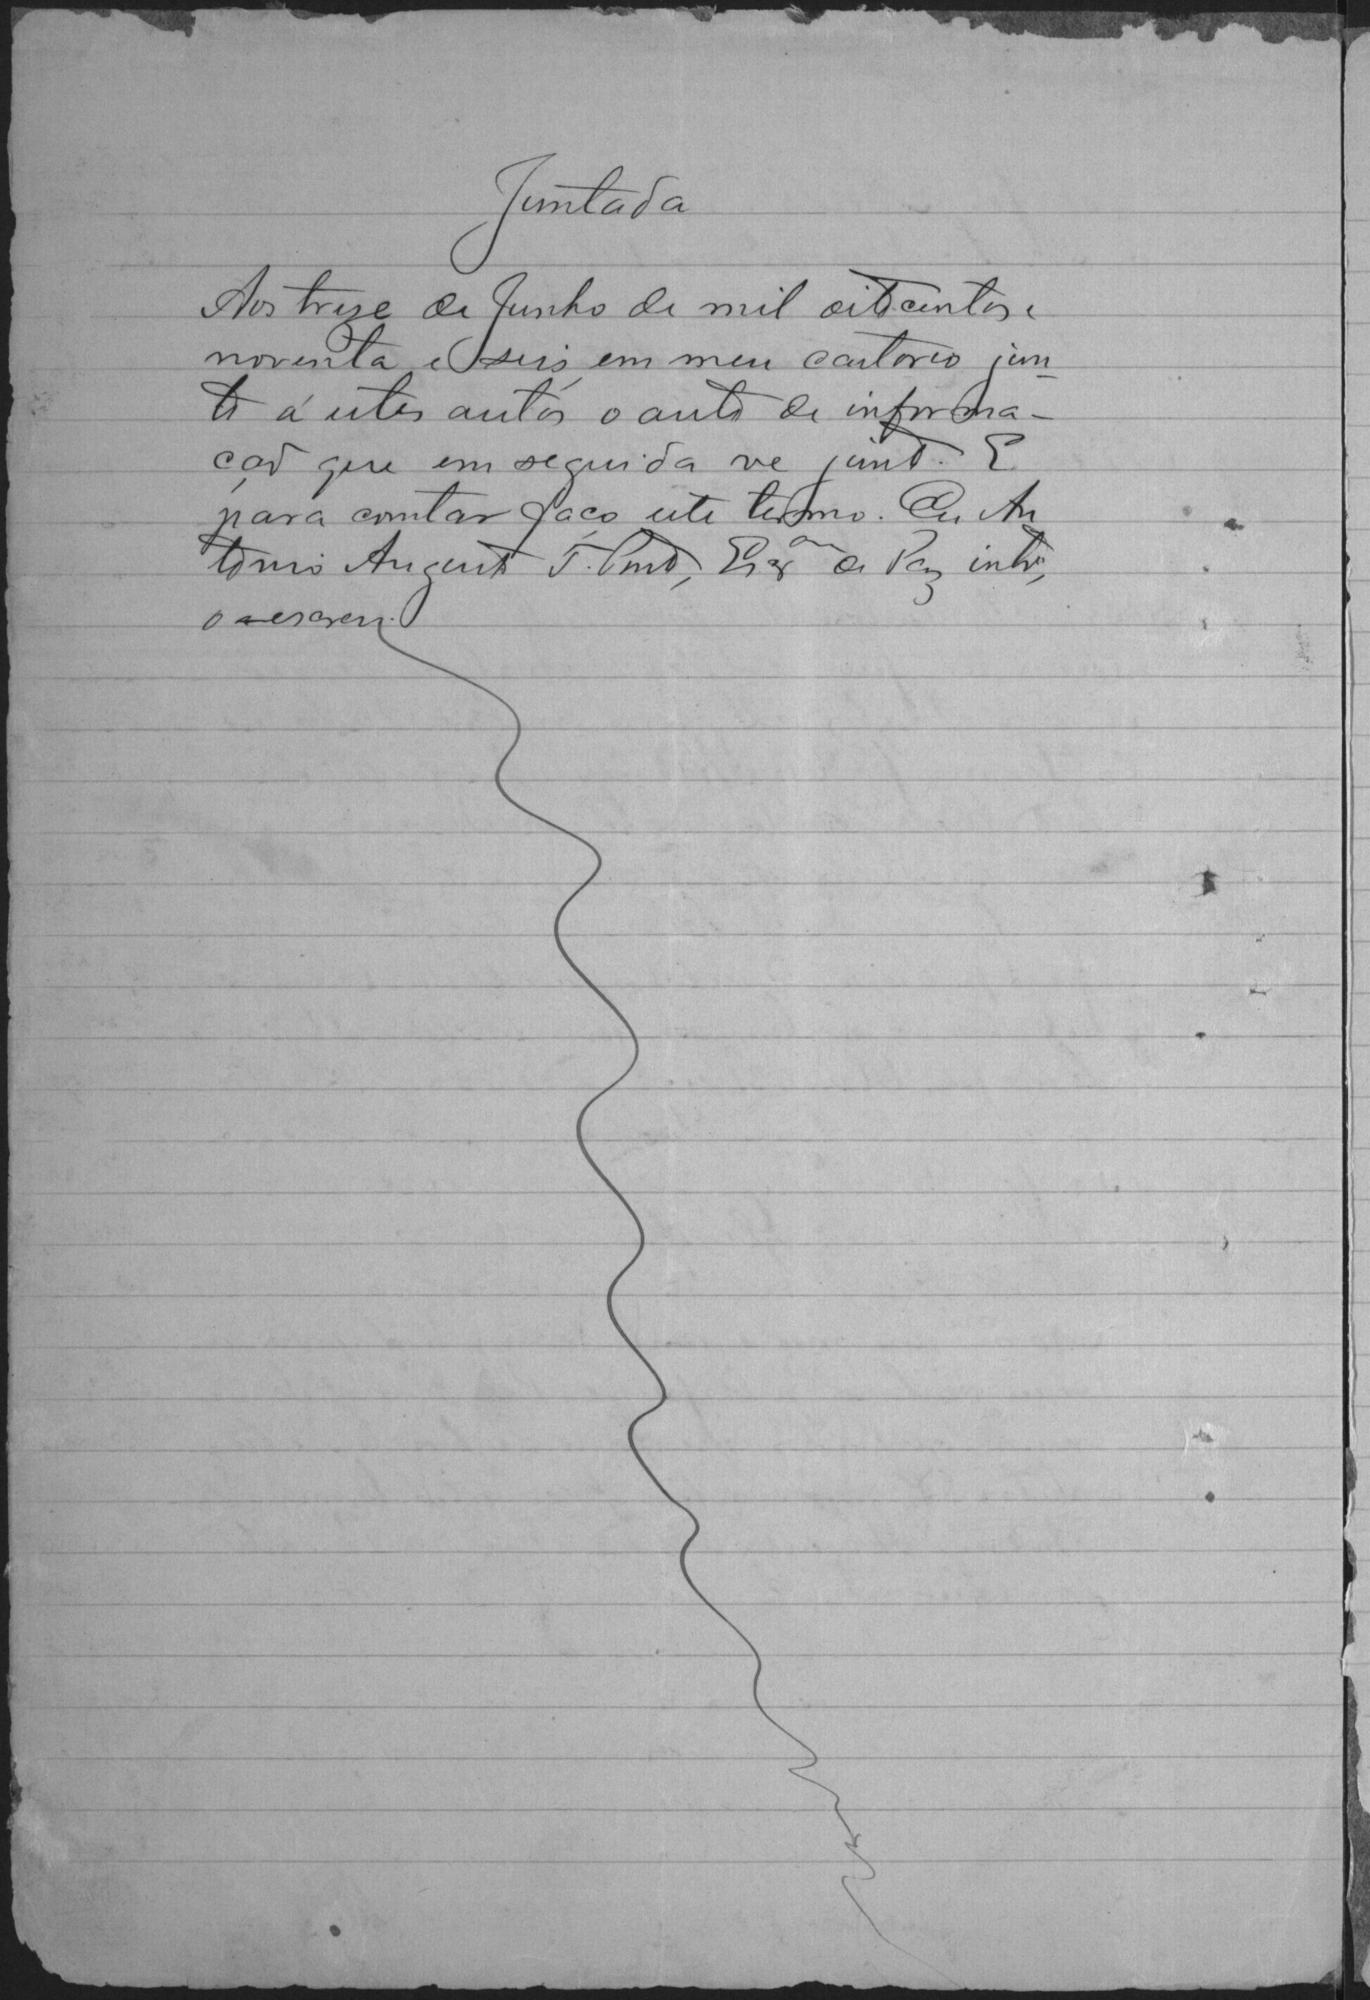 Juntada
Aos treze de Junho de mil oitocentos e
noventa e seis, em meu cartorio jun
to á estes autos o auto de informa-
ção que em seguida se ve junto. E
para constar faço este termo. Eu An
tonio Augusto F. Pinto, Escam de Paz intro,
o escrevi.